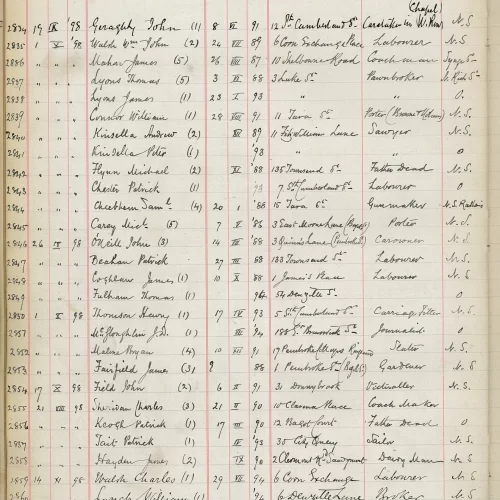 (Chapel)
2834 19 IX '98 Geraghty John (1) 8 VI 91 12 Gt. Cumberland St. Caretaker in W. Row N.S.
2835 1 X '98 Walsh Wm John (2) 24 VII 89 6 Corn Exchange Place Labourer N.S.
2836 " " " Mahar James (5) 26 VIII 87 10 Shelbourne Road Coachman
" " " Lyons Thomas (5) 3 VI 88 3 Luke St. Pawnbroker
2838 " " " Lyons James (1) 23 I 93 " " 0.
2839 " " " Connor William (1) 28 VIII 91 11 Tara St. Porter N.S.
2840 " " " Kinsella Andrew (2) 89 11 Fitzwilliam Lane Sawyer N.S.
2841 " " " Kinsella Peter (1) '93 " " 0
2842 " " " Flynn Michael (2) '88 135 Townsend St. Father Dead N.S.
2843 " " " Chester Patrick (1) '93 7 Gt. Cumberland St. Labourer 0
2844 " " " Cheetham Saml. (4) 20 1 '88 15 Tara St. Gunmaker
2845 " " " Carey Michl. (5) 7 V '86 3 East Moore Lane Porter N.S.
2846 26 IX 98 O'Neill John (3) 14 VII 88 3 Quinn's Lane Carowner N.S.
2847 " " " Beahan Patrick 27 III 88 183 Townsend St. Labourer N.S.
2848 " " " Coghlan James (1) 10 X 88 1 James's Place Labourer N.S.
2849 " " " Fulham Thomas (1) 94 54 Denzille St. 0
2850 1 X 98 Thomson Henry (1) 17 IV 93 5 Gt. Cumberland St. Carriage Fitter N.S.
2851 " " " McGloughlin J.D. (1) '94 188 Gt. Brunswick St. Journalist 0
2852 " " " Malone Bryan (4) 10 XII 91 17 Pembroke Slater N.S.
2853 " " " Fairfield James (3) ? '88 1 Pembroke Gardener N.S.
2854 17 X 98 Field John (2) 6 II 91 31 Donnybrook Victualler N.S.
2855 21 VIII 98 Sheridan Charles (3) 21 II 90 10 Clanna Place Coach Maker
2856 " " " Keogh Patrick (1) 17 III 90 12 Bagot Court Father Dead 0
2857 " " " Tait Patrick (1) '93 30 City Quay Sailor N.S.
2858 " " " Hayden James (2) IX 90 2 Claremont Dairy Man N.S.
2859 14 XI 98 Walsh Charles (1) 29 VII 94 6 Corn Exchange Labourer N.S.
Lynch William 94 6 Denzille Lane Brother N.S.